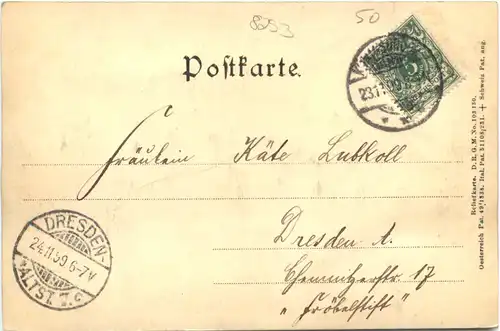 8253
50
Postkarte.
23.11.99
Fräulein Käte Lubkoll
Dresden A.
Chemnitzerstr. 17
„Fröbelstift“
DRESDEN-
24.11.99.6-7V
ALTST.
Reliefkarte. D. R. G. M. No. 103 150.
Oesterreich Pat. 49/1838. Ital. Pat. 31108/251. + Schweiz Pat. ang.